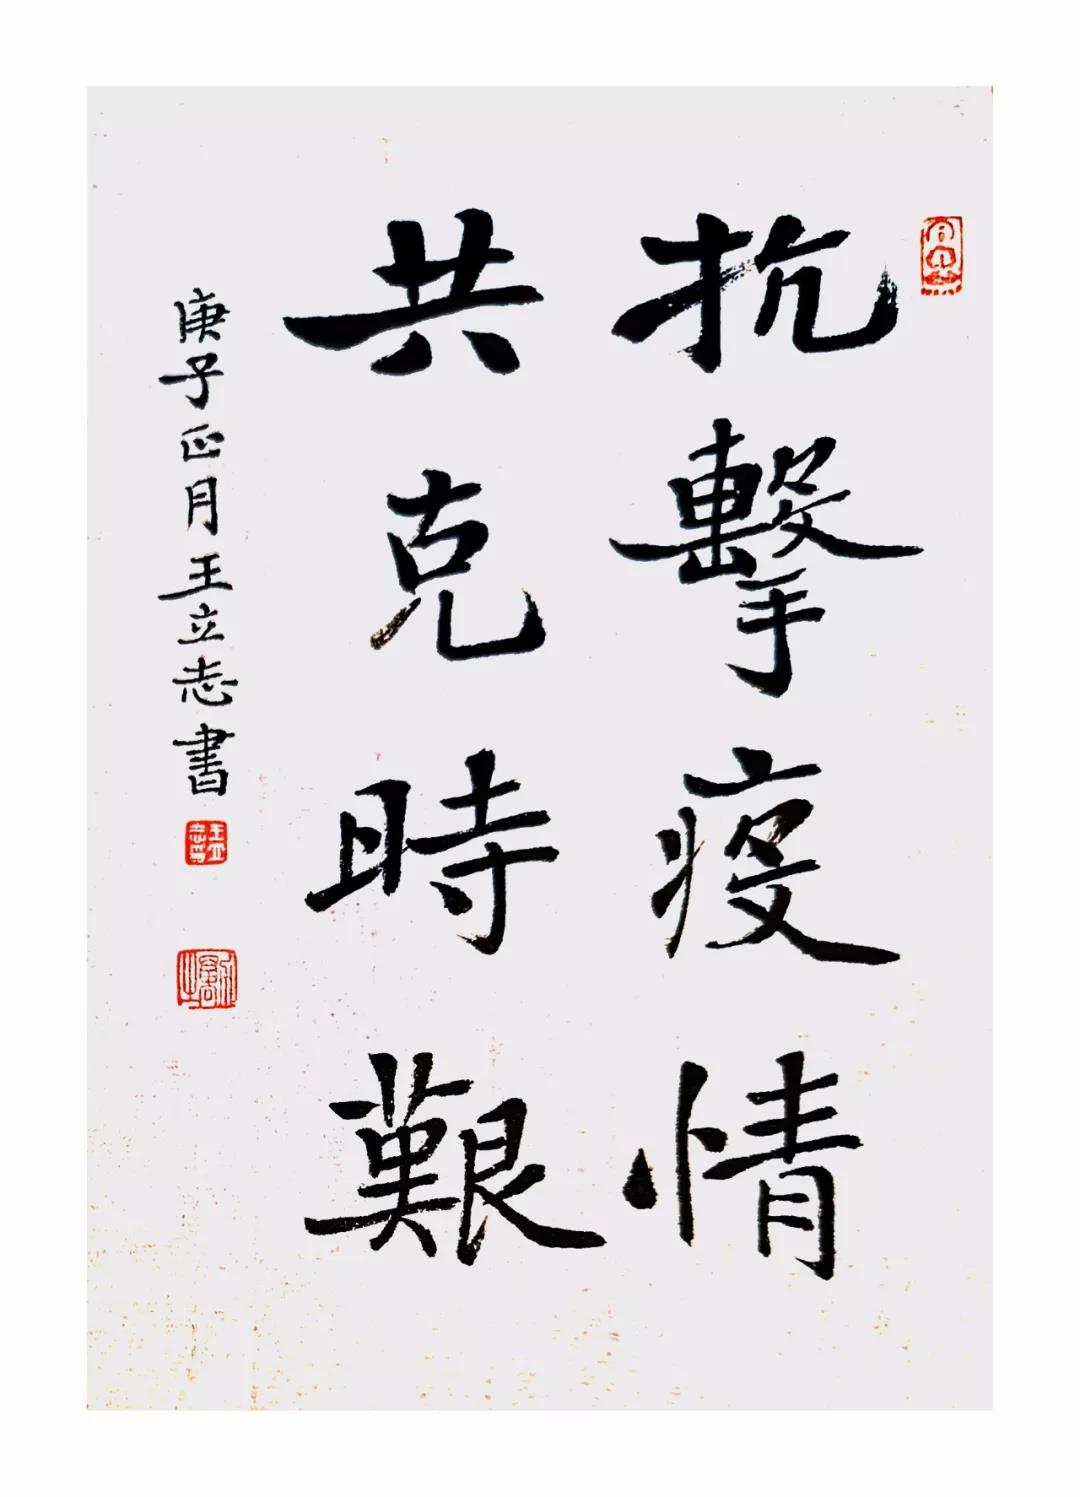 抗擊疫情
共克時艱
庚子正月王立志書